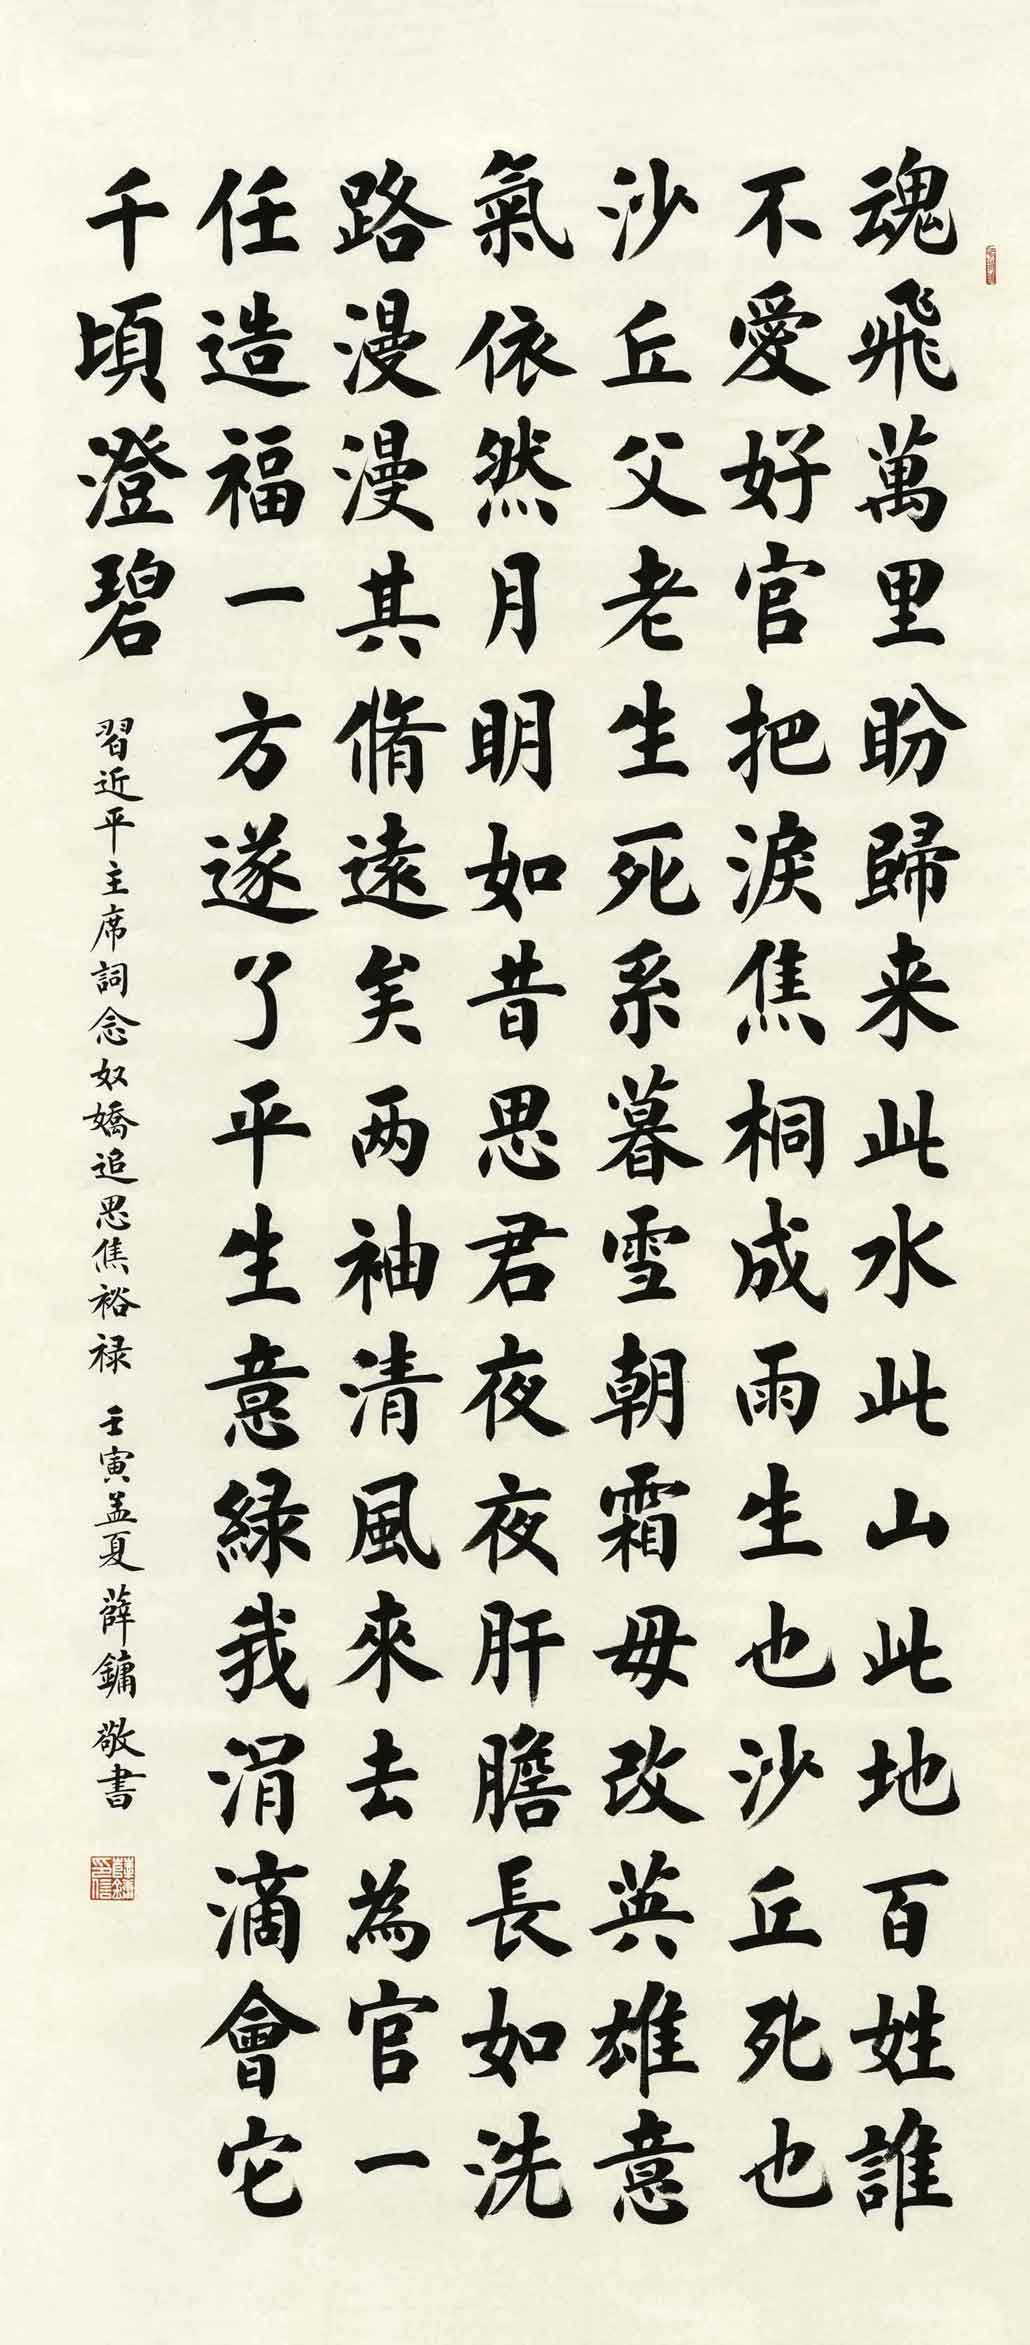 魂飛萬里盼歸来此水此山此地百姓誰
不愛好官把淚焦桐成雨生也沙丘死也
沙丘父老生死系暮雪朝霜毋改英雄意
氣依然月明如昔思君夜夜肝膽長如洗
路漫漫其脩遠矣两袖清風來去為官一
任造福一方遂了平生意綠我涓滴會它
千頃澄碧
習近平主席詞念奴嬌追思焦裕禄 壬寅孟夏薛鏞敬書